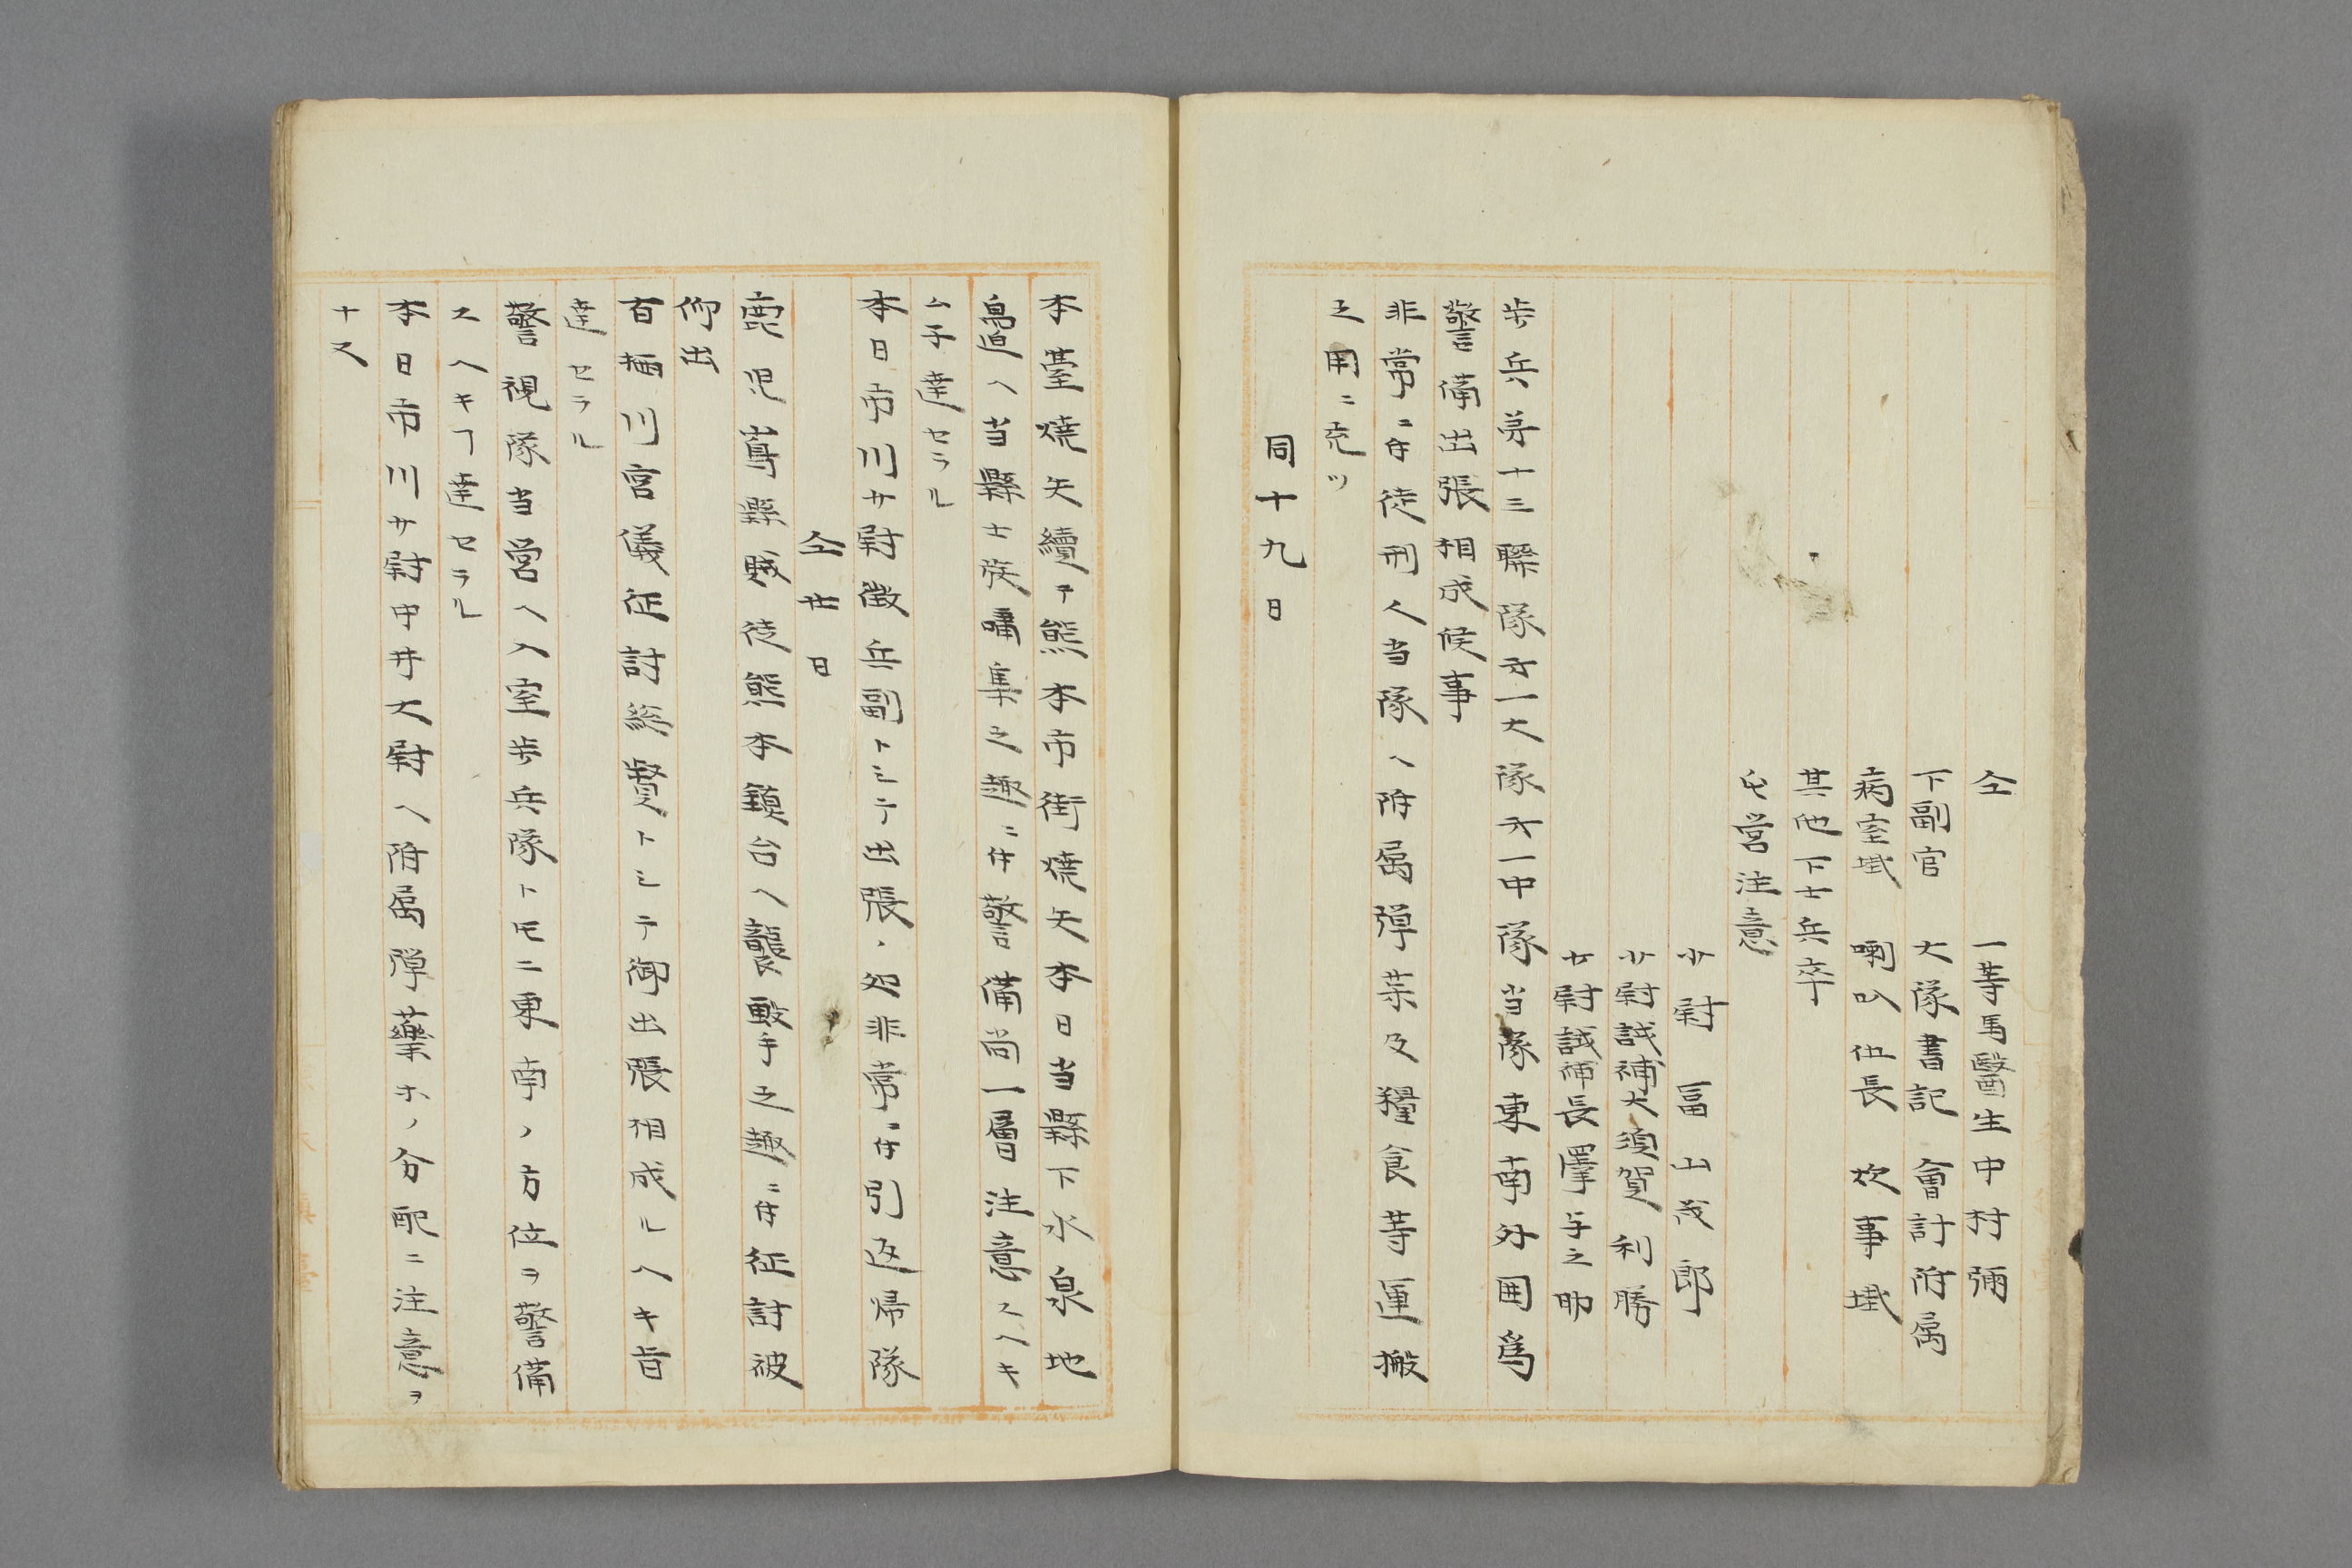 仝 一等馬醫生中村彌
下副官 大隊書記 會計附属
病室掛 喇叭伍長 炊事掛
其他下士兵卒
屯営注意
少尉 冨山茂郎
少尉試補大須賀利勝
少尉試補長澤与之助
歩兵第十三聯隊㐧一大隊㐧一中隊当隊東南外囲為
警備出張相成候事
非常ニ付徒刑人当隊ヘ附属弾薬及糧食等運搬
之用ニ充ツ
同十九日
本臺焼失續テ熊本市街焼失本日当縣下水泉地
島邉ヘ当縣士族嘯集之趣ニ付警備尚一層注意スヘキ
ムネ達セラル
本日市川少尉徴兵副トシテ出張ノ処非常ニ付引返帰隊
仝廿日
鹿児嶋縣賊徒熊本鎮台ヘ襲撃之趣ニ付征討被
仰出
有栖川宮儀征討総督トシテ御出張相成ルヘキ旨
達セラル
警視隊当営ヘ入室歩兵隊トモニ東南ノ方位ヲ警備
スヘキ丁達セラル
本日市川少尉中井大尉ヘ附属弾藥ホノ分配ニ注意ヲ
ナス